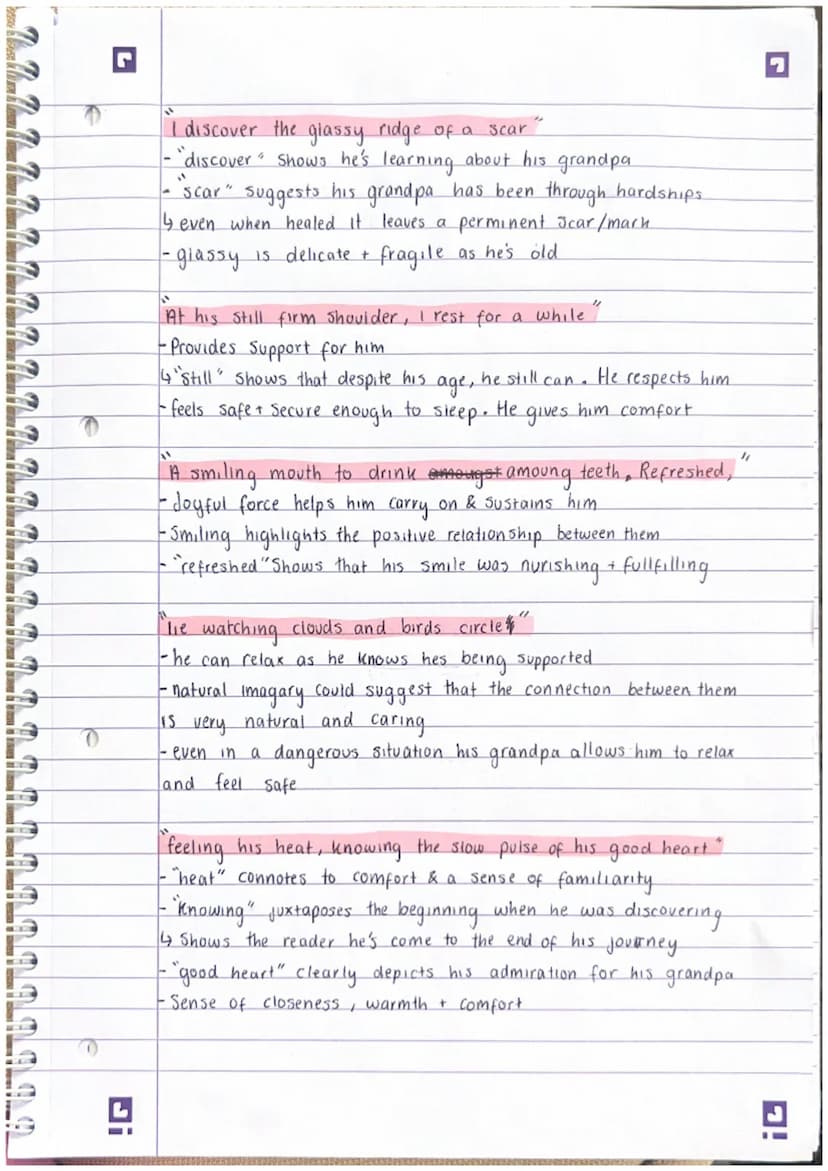 "I discover the glassy ridge of a scar"
- "discover" shows he's learning about his grandpa
- "scar" suggests his grandpa has been through hardships
↳ even when healed it leaves a perminent scar/mark
- glassy is delicate + fragile as he's old
"At his still firm shoulder, I rest for a while"
- Provides support for him
↳ "still" shows that despite his age, he still can. He respects him
- feels safe + secure enough to sleep. He gives him comfort
"A smiling mouth to drink amougst amoung teeth, Refreshed,"
- Joyful force helps him carry on & sustains him
- Smiling highlights the positive relationship between them
- "refreshed" Shows that his smile was nurishing + fullfilling
"lie watching clouds and birds circle"
- he can relax as he knows hes being supported
- natural imagary could suggest that the connection between them
is very natural and caring
- even in a dangerous situation his grandpa allows him to relax
and feel safe
"feeling his heat, knowing the slow pulse of his good heart"
- "heat" connotes to comfort & a sense of familiarity
- "knowing" juxtaposes the beginning when he was discovering
↳ Shows the reader he's come to the end of his journey
- "good heart" clearly depicts his admiration for his grandpa
- Sense of closeness, warmth + comfort